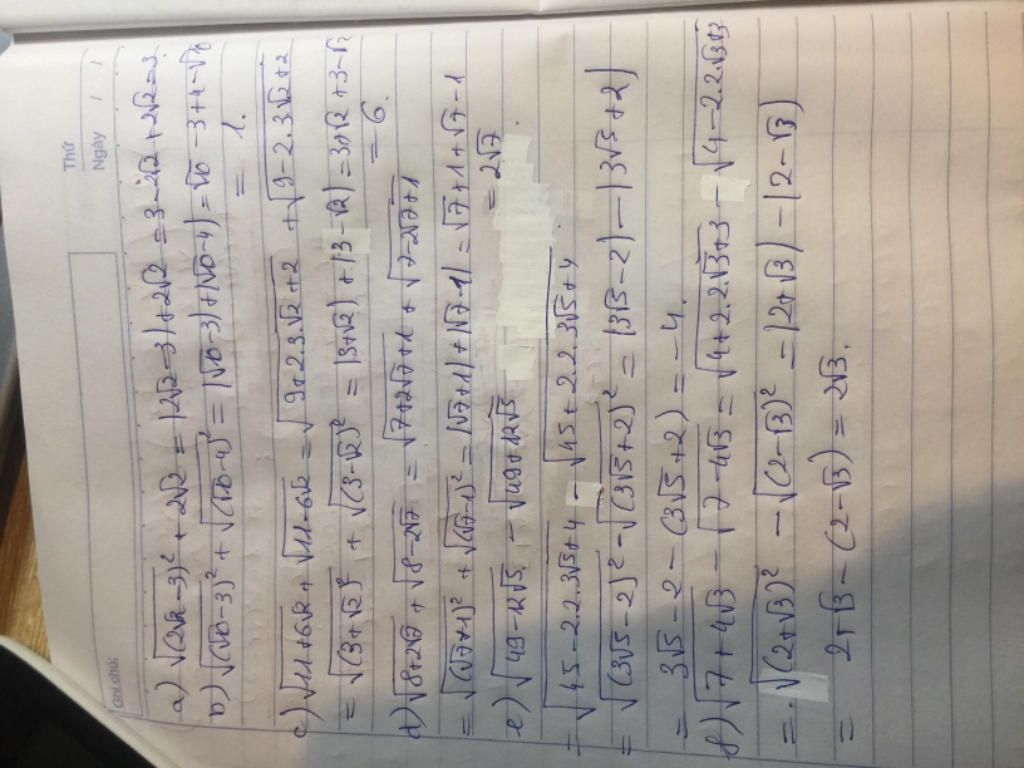 Ghi chú:
Thứ
Ngày / /
a) √(2√2-3)² + 2√2 = |2√2-3| + 2√2 = 3-2√2 + 2√2 = 3.
b) √(√10-3)² + √(√10-4)² = |√10-3| + |√10-4| = √10-3+4-√10
= 1.
c) √11+6√2 + √11-6√2 = √9+2.3.√2+2 + √9-2.3√2+2
= √(3+√2)² + √(3-√2)² = |3+√2| + |3-√2| = 3+√2+3-√2
= 6.
d) √8+2√7 + √8-2√7 = √7+2√7+1 + √7-2√7+1
= √(√7+1)² + √(√7-1)² = |√7+1| + |√7-1| = √7+1+√7-1
= 2√7
e) √49-12√5 - √49+12√5
= √45-2.2.3√5+4 - √45+2.2.3√5+4
= √(3√5-2)² - √(3√5+2)² = |3√5-2| - |3√5+2|
= 3√5-2-(3√5+2) = -4.
f) √7+4√3 - √7-4√3 = √4+2.2√3+3 - √4-2.2.√3+3
= √(2+√3)² - √(2-√3)² = |2+√3| - |2-√3|
= 2+√3-(2-√3) = 2√3.